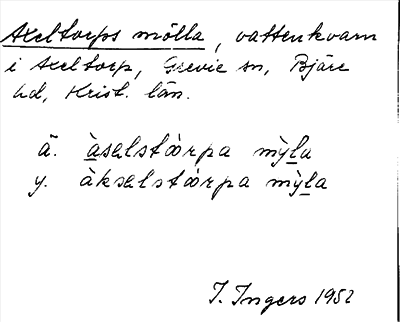 Axeltorps mölla, vattenkvarn
i Axeltorp, Grevie sn, Bjäre
hd, Krist. län.
ä. àsəlstòrpa mỳla
y. àksəlstòrpa mỳla
I. Ingers 1952